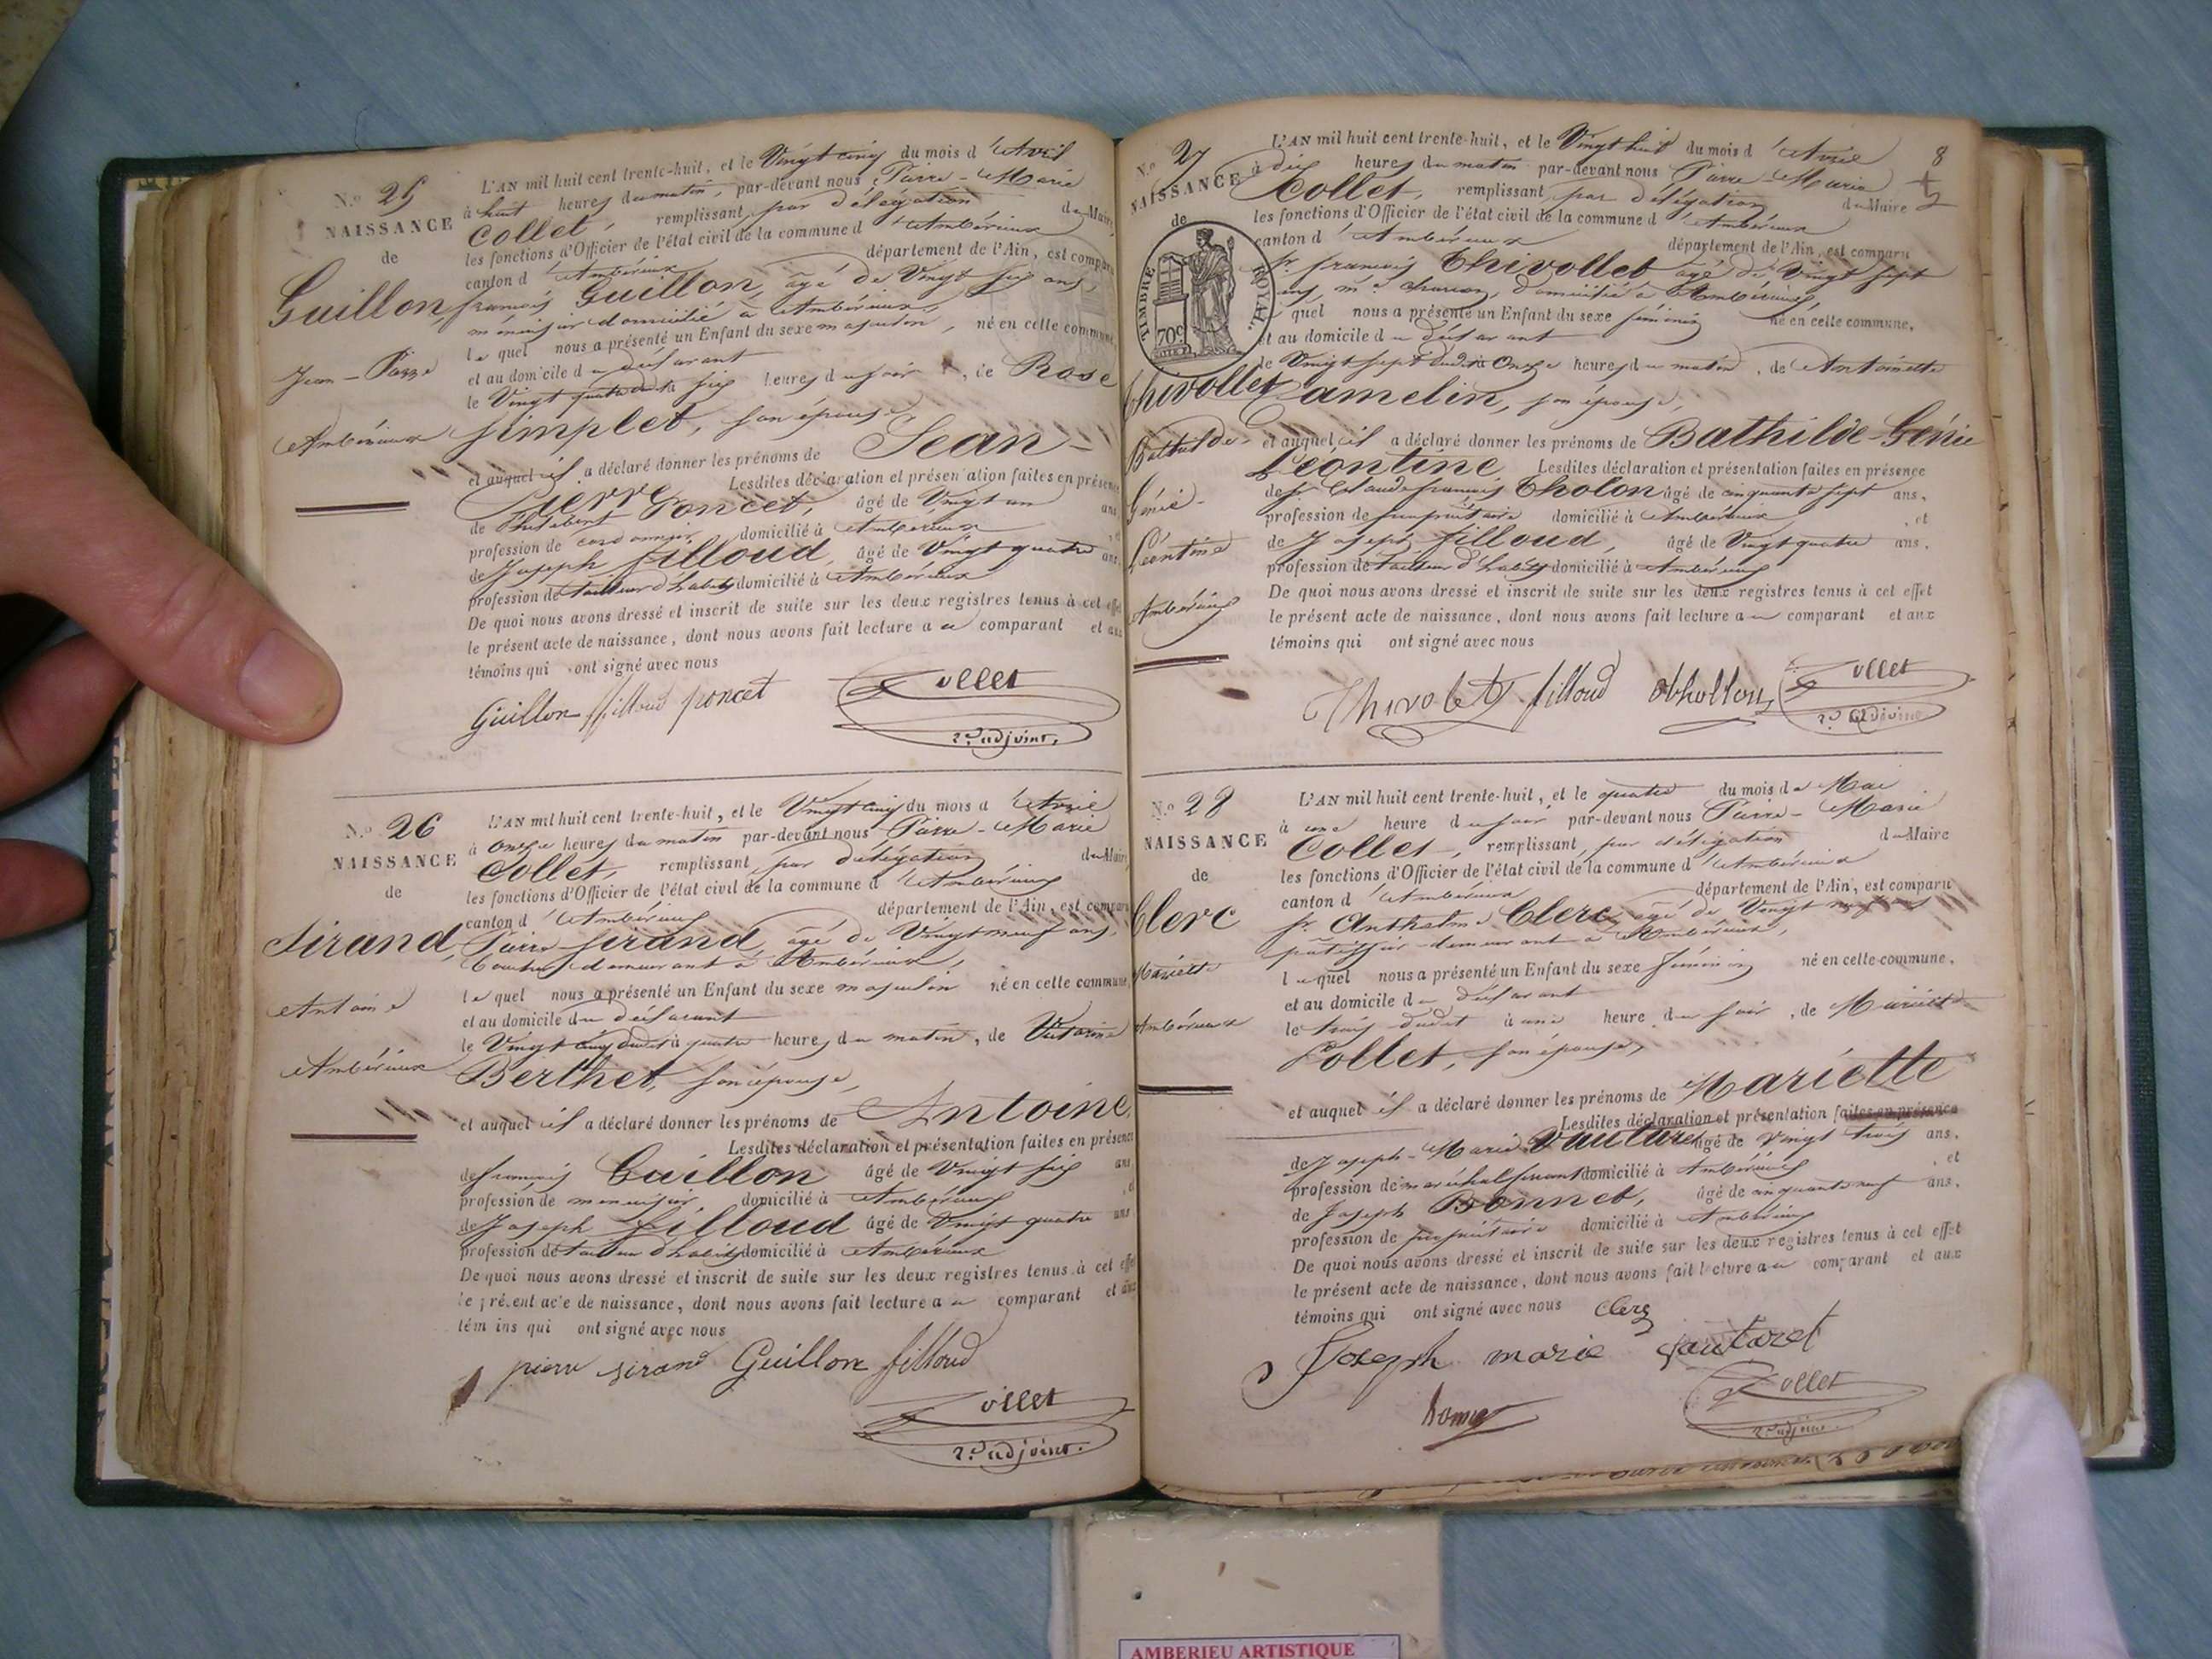 N.o 25
NAISSANCE
de
Guillon,
Jean-Pierre
Ambérieux
L'AN mil huit cent trente-huit, et le Vingt cinq du mois d'Avril
à huit heures du matin, par-devant nous Pierre-Marie
Collet, remplissant par délégation du Maire,
les fonctions d'Officier de l'état civil de la commune d'Ambérieux
canton d'Ambérieux département de l'Ain, est comparu
françois Guillon, âgé de Vingt six ans,
menuisier domicilié à Ambérieux,
lequel nous a présenté un Enfant du sexe masculin, né en cette commune,
et au domicile du déclarant
le Vingt quatre six heures du soir, de Rose
simplet, son épouse,
et auquel il a déclaré donner les prénoms de Jean-
Pierre Lesdites déclaration et présentation faites en présence
de Philibert Poncet, âgé de Vingt un ans
profession de cordonnier domicilié à Ambérieux, et
de Joseph filloud, âgé de Vingt quatre ans,
profession de tailleur d'habits domicilié à Ambérieux
De quoi nous avons dressé et inscrit de suite sur les deux registres tenus à cet effet
le présent acte de naissance, dont nous avons fait lecture au comparant et aux
témoins qui ont signé avec nous
Guillon filloud poncet Collet
2e adjoint,
N.o 26
NAISSANCE
de
Sirand,
Antoine
Ambérieux
L'AN mil huit cent trente-huit, et le Vingt cinq du mois d'Avril
à onze heures du matin par-devant nous Pierre-Marie
Collet, remplissant par délégation du Maire
les fonctions d'Officier de l'état civil de la commune d'Ambérieux
canton d'Ambérieux département de l'Ain, est comparu
Pierre Sirand, âgé de Vingt neuf ans,
demeurant à Ambérieux,
lequel nous a présenté un Enfant du sexe masculin né en cette commune,
et au domicile du déclarant
le Vingt cinq dudit à quatre heures du matin, de Victorine
Berthet, son épouse,
et auquel il a déclaré donner les prénoms de Antoine,
Lesdites déclaration et présentation faites en présence
de françois Guillon âgé de Vingt six ans
profession de menuisier domicilié à Ambérieux, et
de Joseph filloud âgé de Vingt quatre ans
profession de tailleur d'habits domicilié à Ambérieux
De quoi nous avons dressé et inscrit de suite sur les deux registres tenus à cet effet
le présent acte de naissance, dont nous avons fait lecture au comparant et aux
témoins qui ont signé avec nous
pierre sirand Guillon filloud
Collet
2e adjoint.
8
N.o 27
NAISSANCE
de
TIMBRE ROYAL.
70c
Thivollet
Bathilde-
Génie-
Léontine
Ambérieux
L'AN mil huit cent trente-huit, et le Vingt huit du mois d'Avril
à dix heures du matin par-devant nous Pierre-Marie
Collet, remplissant par délégation du Maire
les fonctions d'Officier de l'état civil de la commune d'Ambérieux
canton d'Ambérieux département de l'Ain, est comparu
sr. françois Thivollet âgé de Vingt sept
ans, domicilié à Ambérieux,
lequel nous a présenté un Enfant du sexe féminin né en cette commune,
et au domicile du déclarant
le Vingt sept dudit à Onze heures du matin, de Antoinette
amelin, son épouse,
et auquel il a déclaré donner les prénoms de Bathilde-Génie
Léontine Lesdites déclaration et présentation faites en présence
de sr. Claude françois Tholon âgé de cinquante sept ans,
profession de propriétaire domicilié à Ambérieux, et
de Joseph filloud, âgé de Vingt quatre ans,
profession de tailleur d'habits domicilié à Ambérieux
De quoi nous avons dressé et inscrit de suite sur les deux registres tenus à cet effet
le présent acte de naissance, dont nous avons fait lecture au comparant et aux
témoins qui ont signé avec nous
Thivolet filloud Collet
2e adjoint
N.o 28
NAISSANCE
de
Clerc
Mariette
Ambérieux
L'AN mil huit cent trente-huit, et le quatre du mois de Mai
à une heure du soir par-devant nous Pierre-Marie
Collet, remplissant, par délégation du Maire
les fonctions d'Officier de l'état civil de la commune d'Ambérieux
canton d'Ambérieux département de l'Ain, est comparu
sr. Anthelme Clerc, âgé de Vingt neuf ans
pâtissier demeurant à Ambérieux,
lequel nous a présenté un Enfant du sexe féminin né en cette commune,
et au domicile du déclarant
le trois dudit à une heure du soir, de Mariette
Collet, son épouse,
et auquel il a déclaré donner les prénoms de Mariette
Lesdites déclaration et présentation faites en présence
de Joseph-Marie Vautaret âgé de Vingt trois ans,
profession de maréchal ferrant domicilié à Ambérieux, et
de Joseph Bonnet, âgé de cinquante neuf ans,
profession de propriétaire domicilié à Ambérieux
De quoi nous avons dressé et inscrit de suite sur les deux registres tenus à cet effet
le présent acte de naissance, dont nous avons fait lecture au comparant et aux
témoins qui ont signé avec nous Clerc
Joseph marie vautaret
Collet
2e adjoint.
AMBERIEU ARTISTIQUE